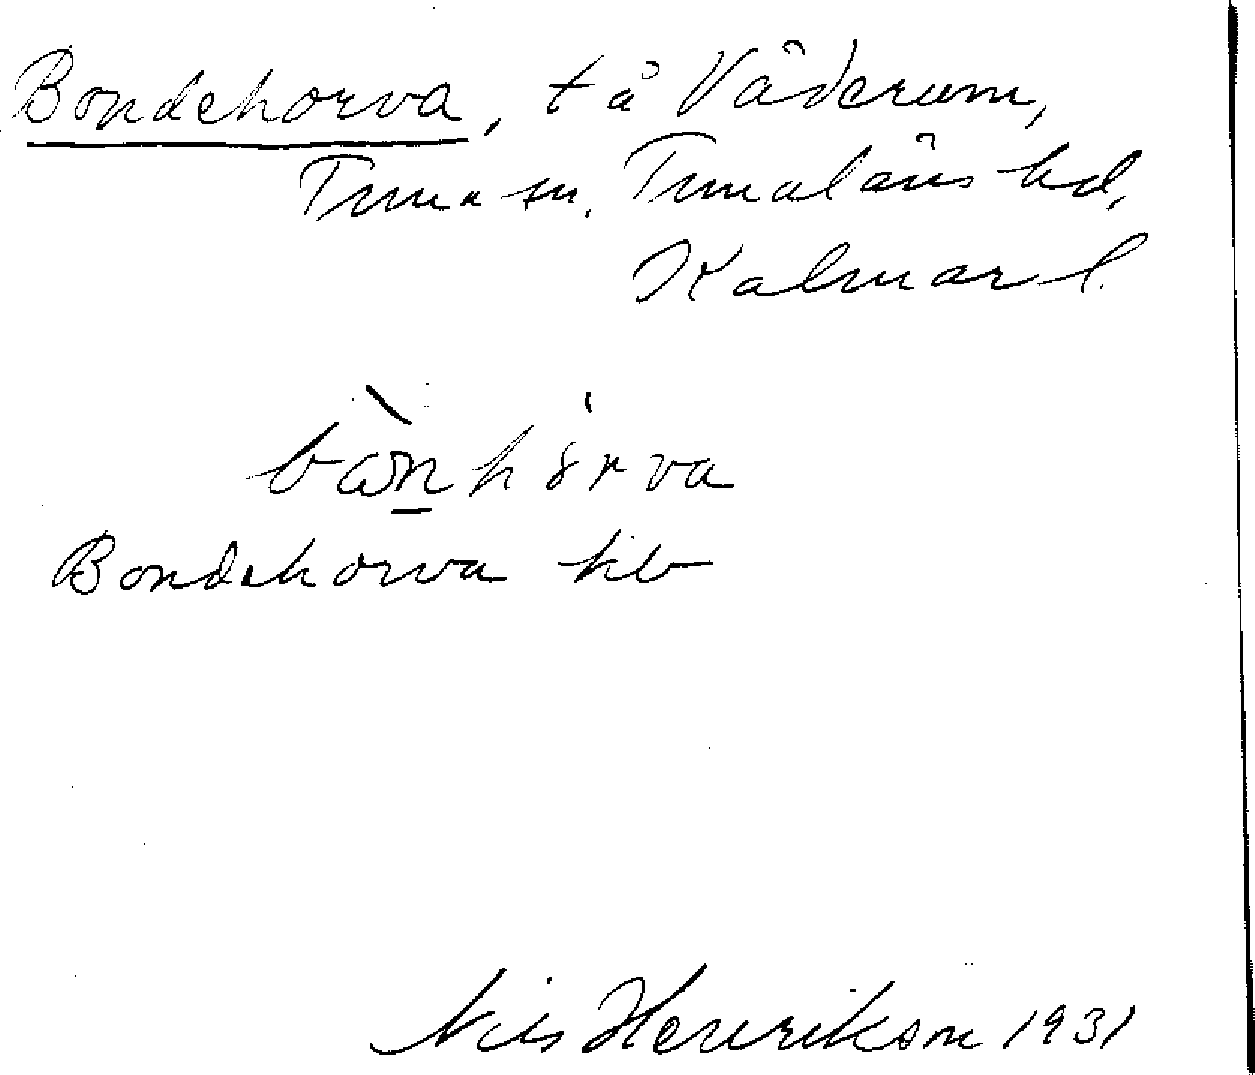 Bondehorva, tå Väderum,
Tuna sn. Tunaläns hd,
Kalmar l.
Bondehorva hb
Nils Henrikson 1931